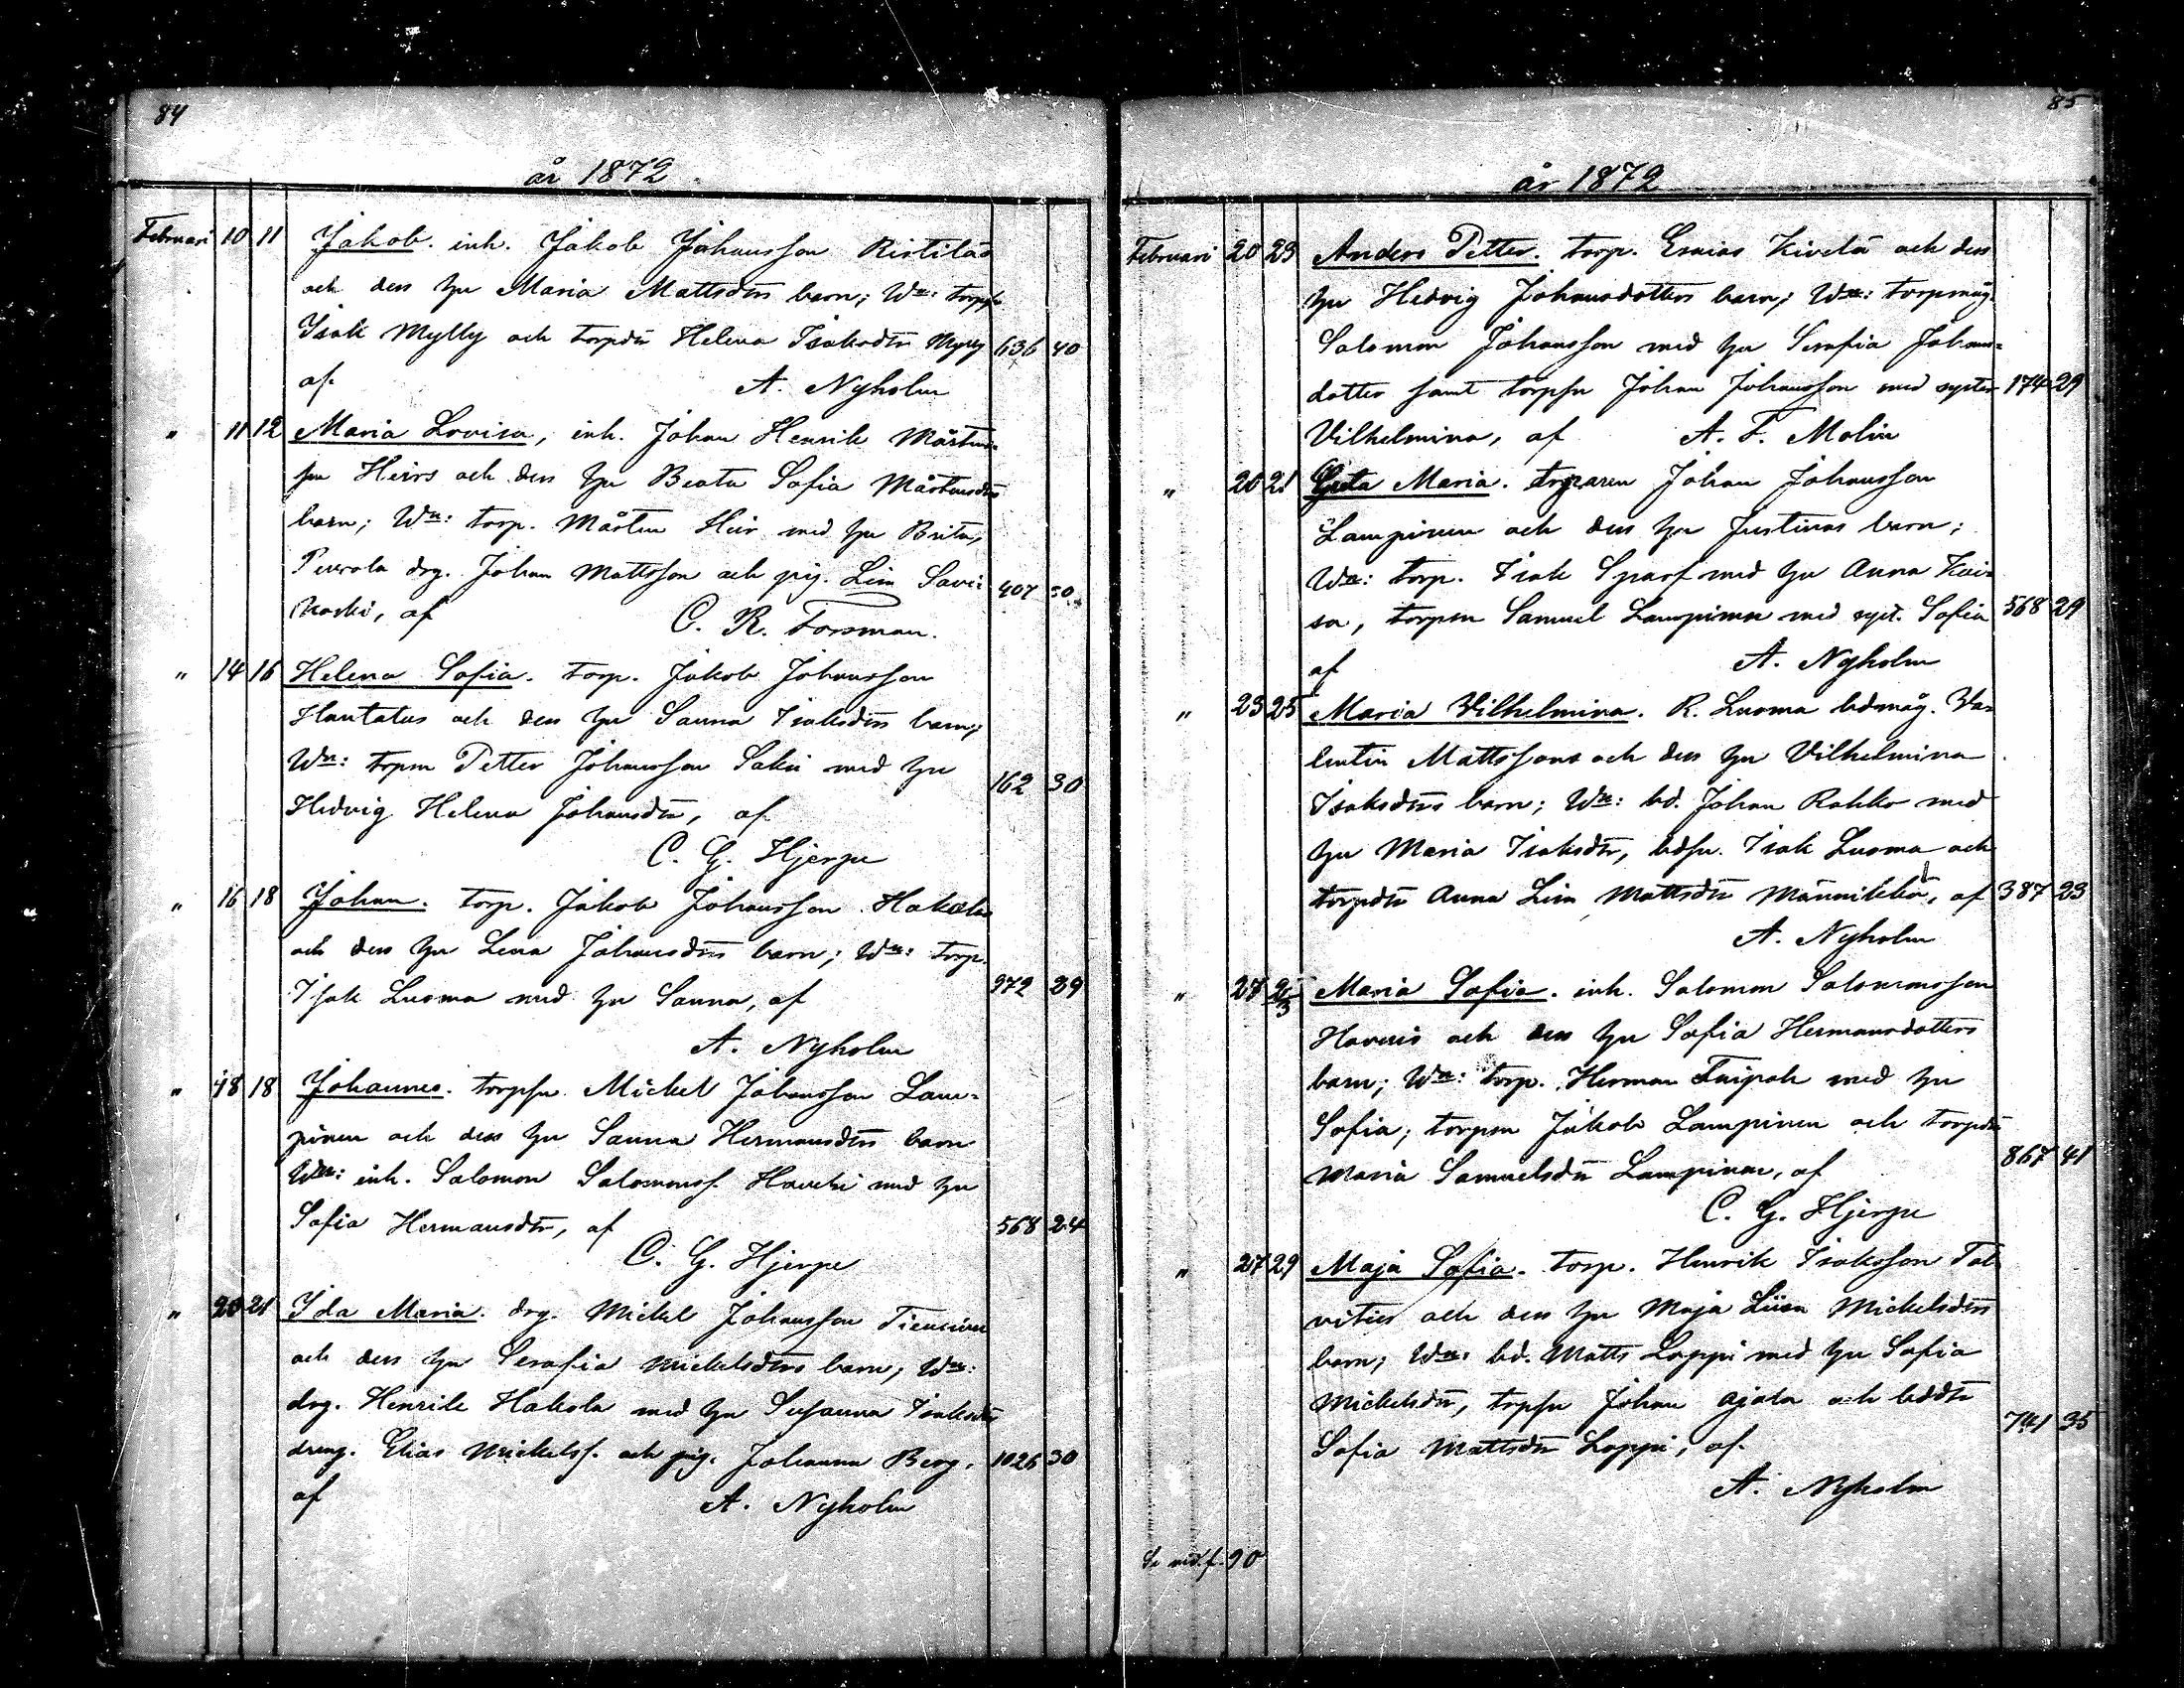 84
år 1872.
Februari 10 11 Jakob. inh. Jakob Johansson Ristiläs
och dess hu Maria Mattsdrs barn; Wn: torpsn
Isak Mylly och torpdr Helena Isaksdr Mylly 636 40
af A. Nyholm
" 11 12 Maria Lovisa, inh. Johan Henrik Mårtens-
son Heirs och dess hu Beata Sofia Mårtensdrs
barn; Wn: torp. Mårten Heir med hu Brita,
drg. Johan Mattsson och pig. Lisa Savi- 407
koski, af C. R. Forsman.
" 14 16 Helena Sofia. torp. Jakob Johansson
Hantatus och dess hu Sanna Isaksdrs barn;
Wn: torpsn Petter Johansson Saku med hu 162 30
Hedvig Helena Johansdr, af
C. G. Hjerpe
" 16 18 Johan. torp. Jakob Johansson Hakolas
och dess hu Lena Johansdrs barn; Wn: torp.
Isak Luoma med hu Sanna, af 972 29
A. Nyholm
" 18 18 Johannes. torpsn Mickel Johansson Lam-
pinen och dess hu Sanna Hermansdrs barn
Wn: inh. Salomon Salomonss. Haveri med hu
Sofia Hermansdr, af 568 24
C. G. Hjerpe
" 20 21 Ida Maria. drg. Mickel Johansson
och dess hu Serafia Mickelsdrs barn; Wn:
drg. Henrik Hakola med hu Susanna Isaksdr
dreng. Elias Mickelss. och pig. Johanna Berg, 1026 30
af A. Nyholm
85
år 1872
Februari 20 23 Anders Petter. torp. Esaias Kivelä och dess
hu Hedvig Johansdotters barn; Wn: torpmåg.
Salomon Johansson med hu Serafia Johans-
dotter samt torpsn Johan Johansson med syster 174 29
Vilhelmina, af A. F. Molin
" 20 21 Greta Maria. torparen Johan Johansson
Lampinen och dess hu Justinas barn;
Wn: torp. Isak Sparf med hu Anna Kai-
sa, torpsn Samuel Lampinen med syst. Sofia 568 29
af A. Nyholm
" 23 25 Maria Vilhelmina. R. Luoma bdmåg. Va-
lentin Mattssons och dess hu Vilhelmina
Isaksdrs barn; Wn: bd. Johan Rahko med
hu Maria Isaksdr, bdsn. Isak Luoma och
torpdr Anna Lisa Mattsdr Männikkö, af 387 23
A. Nyholm
" Maria Sofia. inh. Salomon Salomonsson
Haveris och dess hu Sofia Hermansdotters
barn; Wn: torp. Herman Taipale med hu
Sofia; torpsn Jakob Lampinen och torpdr
Maria Samuelsdr Lampinen, af 867 41
C. G. Hjerpe
" 27 29 Maja Sofia. torp. Henrik Isaksson Tal-
vities och dess hu Maja Liisa Mickelsdrs
barn; Wn: bd. Matts Loppi med hu Sofia
Mickelsdr, torpsn Johan Ajala och bddtr
Sofia Mattsdr Loppi, af 741 35
A. Nyholm
90